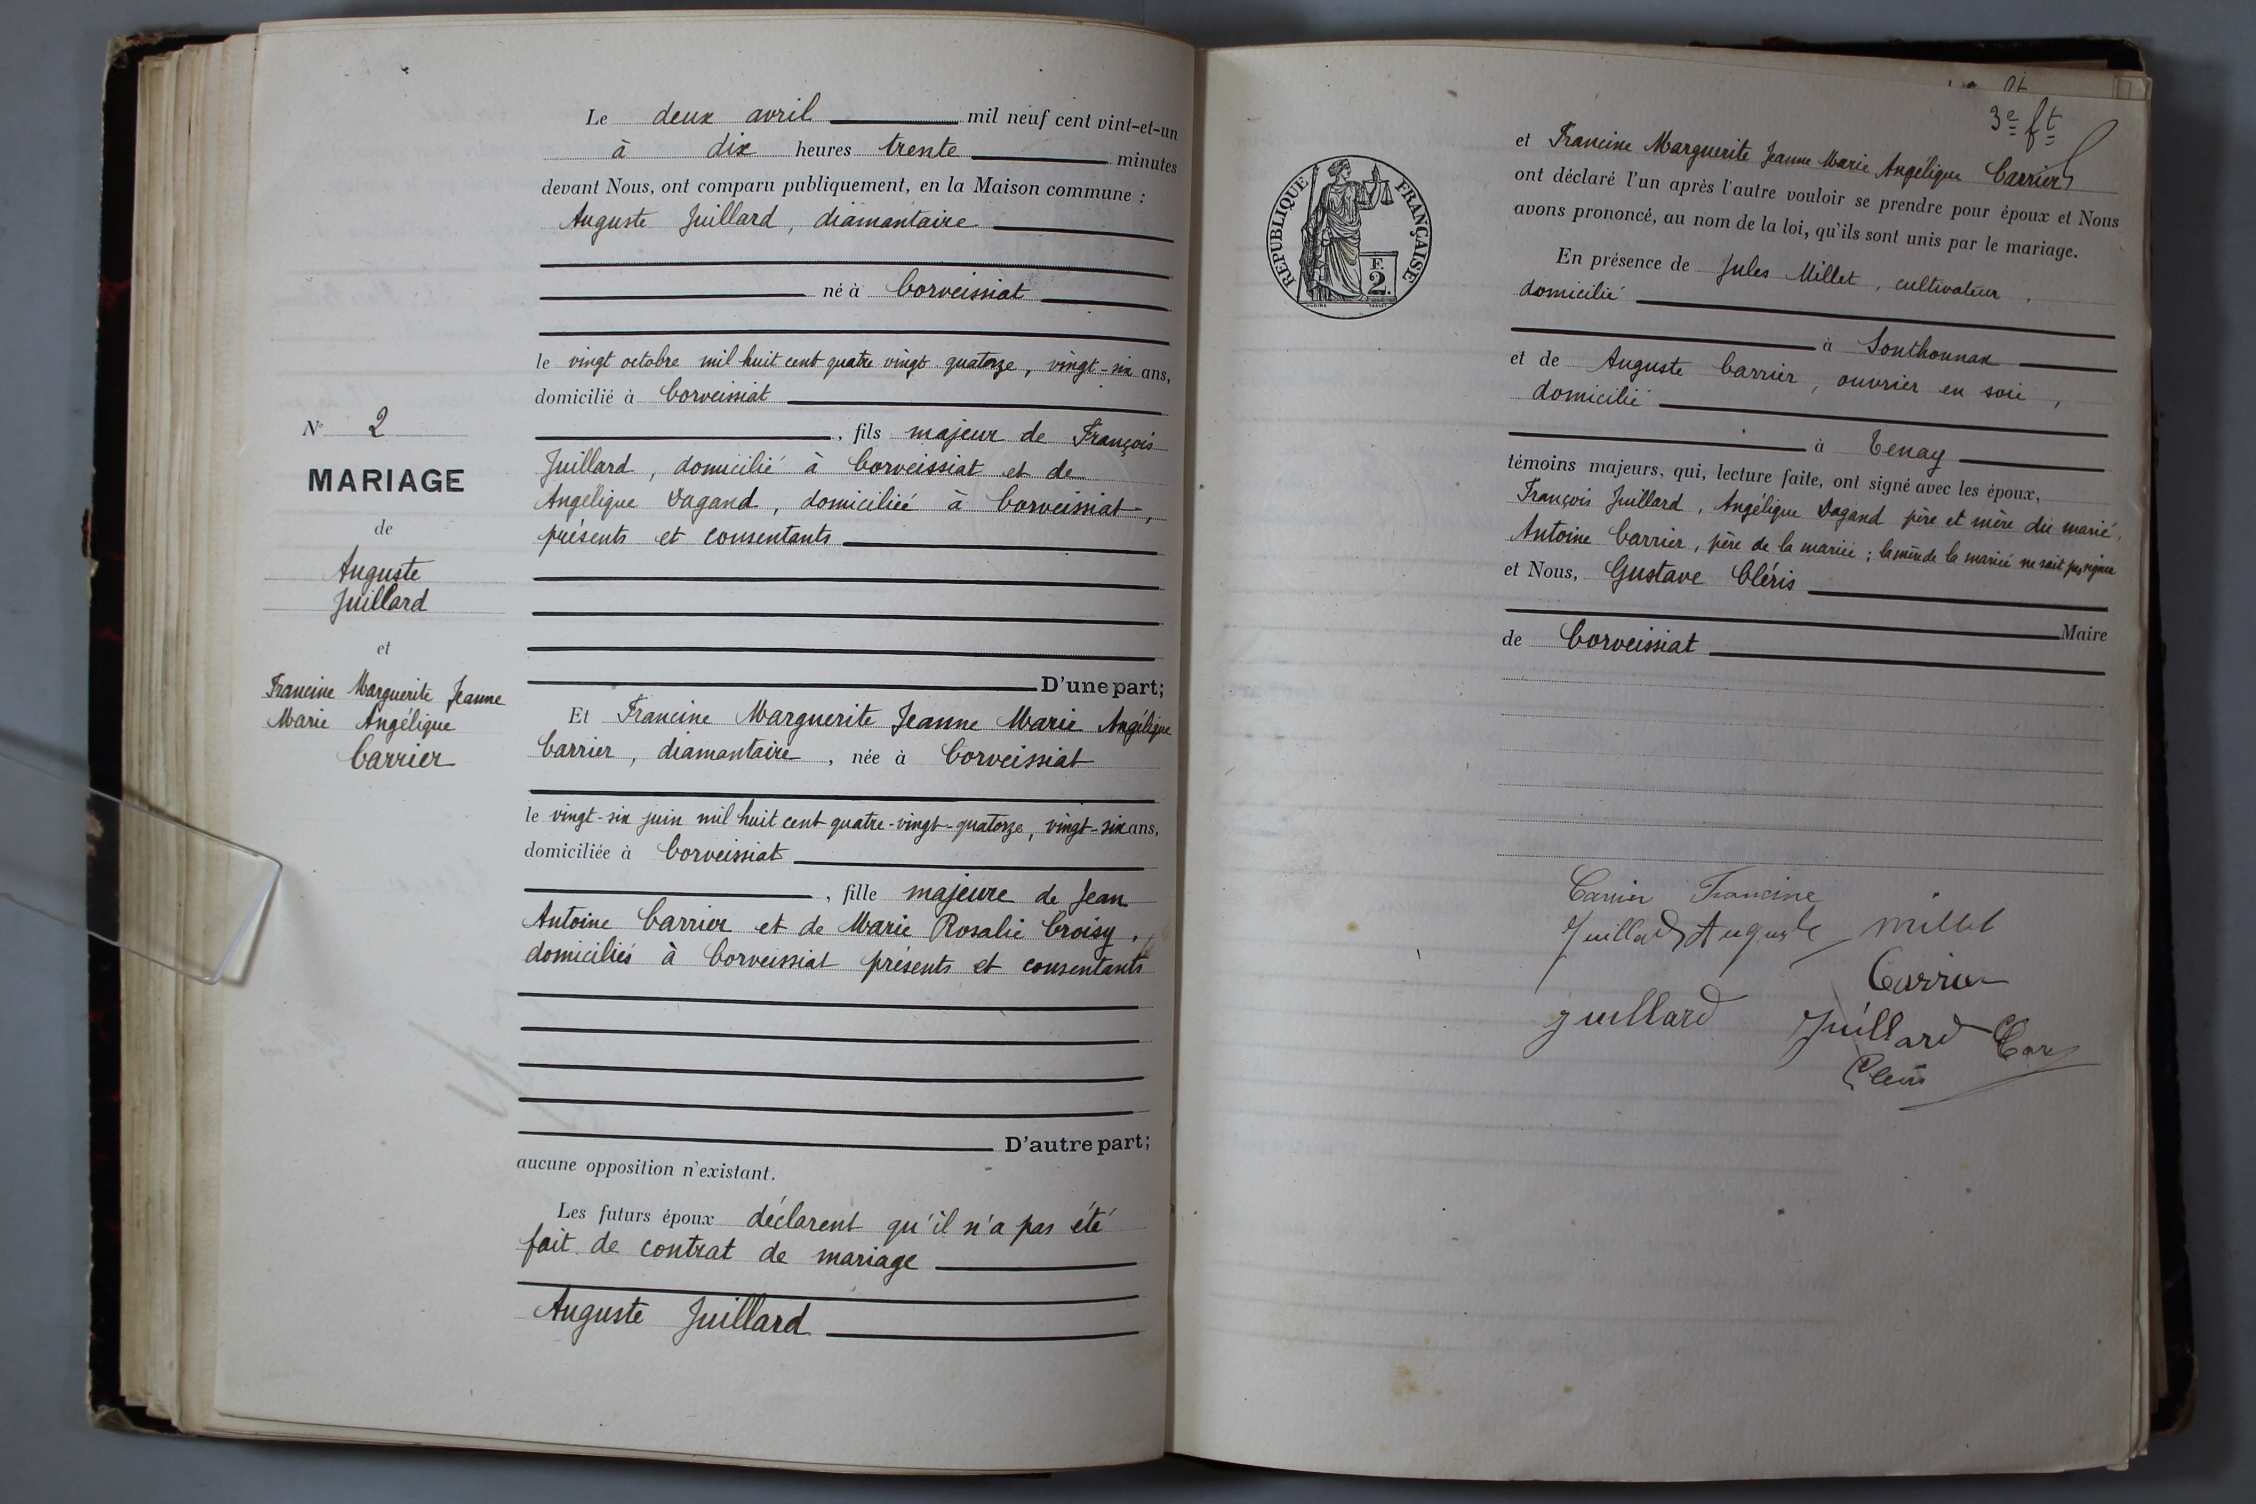 Le deux avril mil neuf cent vint-et-un
à dix heures trente minutes
devant Nous, ont comparu publiquement, en la Maison commune :
Auguste Juillard, diamantaire
né à Corveissiat
le vingt octobre mil huit cent quatre vingt quatorze, vingt-six ans,
domicilié à Corveissiat
, fils majeur de François
Juillard, domicilié à Corveissiat et de
Angélique Dagand, domiciliée à Corveissiat,
présents et consentants
D'une part;
Et Francine Marguerite Jeanne Marie Angélique
Carrier, diamantaire, née à Corveissiat
le vingt-six juin mil huit cent quatre-vingt-quatorze, vingt-six ans,
domiciliée à Corveissiat
, fille majeure de Jean
Antoine Carrier et de Marie Rosalie Croisy,
domiciliés à Corveissiat présents et consentants
D'autre part;
aucune opposition n'existant.
Les futurs époux déclarent qu'il n'a pas été
fait de contrat de mariage
Auguste Juillard
N° 2
MARIAGE
de
Auguste
Juillard
et
Francine Marguerite Jeanne
Marie Angélique
Carrier
3e ft
RÉPUBLIQUE FRANÇAISE
F.
2.
et Francine Marguerite Jeanne Marie Angélique Carrier
ont déclaré l'un après l'autre vouloir se prendre pour époux et Nous
avons prononcé, au nom de la loi, qu'ils sont unis par le mariage.
En présence de Jules Millet, cultivateur,
domicilié
à Sonthonnax
et de Auguste Carrier, ouvrier en soie,
domicilié
à Tenay
témoins majeurs, qui, lecture faite, ont signé avec les époux,
François Juillard, Angélique Dagand père et mère du marié,
Antoine Carrier, père de la mariée ; la mère de la mariée ne sait pas signer
et Nous, Gustave Cléris
Maire
de Corveissiat
Carrier Francine
Juillard Auguste Millet
Carrier
Juillard Juillard
Cléris